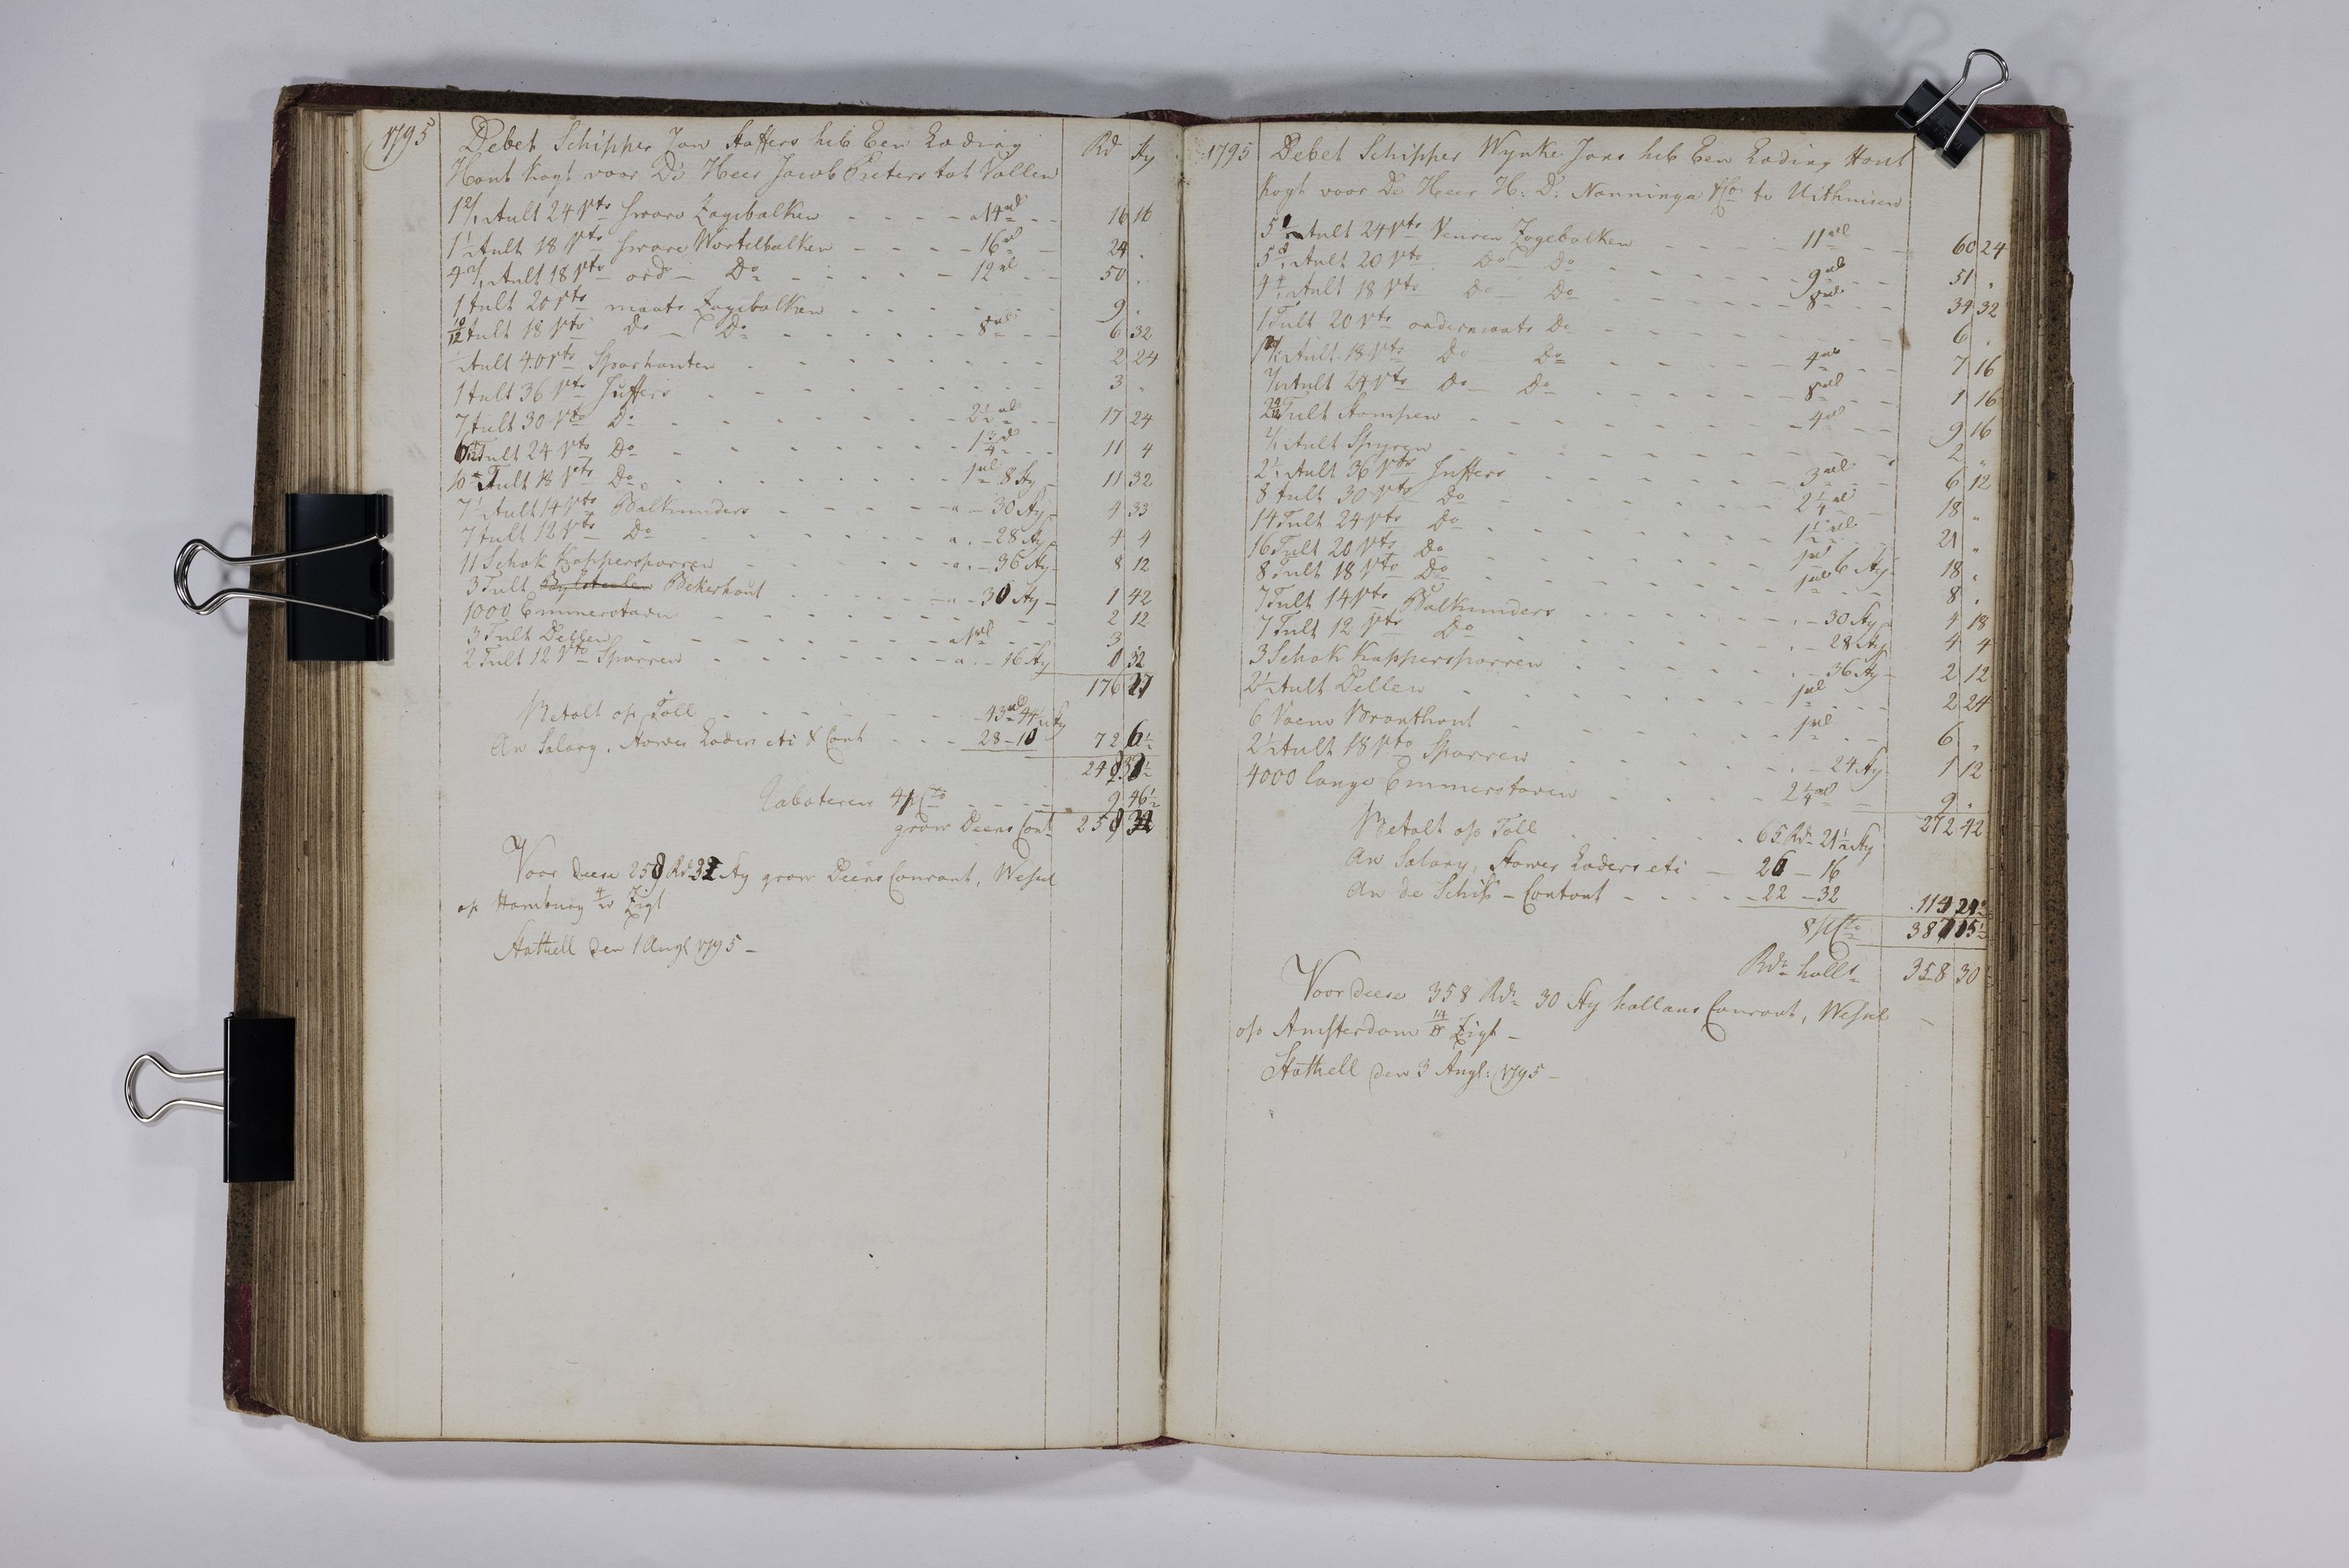 1795 Debet Schipper Jan Hatters heb Een Lading Rd Sty
Hout kogt voor De Heer Jacob Pieters tot Vollen
1 2/12 Tult 24 Vto sware Zagebalken a 14 rd 16 16
1 1/2 Tult 18 Vto sware Wortelbalken 16 rd 24 .
4 2/12 Tult 18 Vto ord Do 12 rd 50 .
1 Tult 20 Vto maats Zagebalken 9 .
10/12 Tult 18 Vto Do Do 8 rd 6 32
Tult 40 Vto Sparhouten 2 24
1 Tult 36 Vto Juffers 3 .
7 Tult 30 Vto Do 2 1/2 rd 17 24
Tult 24 Vto Do 1 3/4 rd 11 4
10 Tult 18 Vto Do 1 rd 8 Sty 11 32
7 1/2 Tult 14 Vto Balkunders a 30 Sty 4 33
7 Tult 12 Vto Do a 28 Sty 4 4
11 Schok Kappersparren a 36 Sty 8 12
3 Tult Bekerhout a 30 Sty 1 42
1000 Emmerstaven 2 12
3 Tult Dellen a 1 rd 3
2 Tult 12 Vto Sparren a 16 Sty 0 32
176 27
Betalt op Toll 43 rd 44 1/2 Sty
An Salary, Stower Laders etc & Cont 28 - 10 72 6 1/2
Rabateren 4 pCto 9 46 1/2
grow Deens Cont
Voor deese Rd Sty grow Deens Courant, Wessel
op Hamburg Zigt
Stathell den 1 Augt 1795 -
1795 Debet Schipper Wynke Jans heb Een Lading Hout
kogt voor De Heer H: D: Nanninga & Co to Uithuisen
5 1/2 Tult 24 Vto Vensen Zagebalken 11 rd 60 24
5 Tult 20 Vto Do Do 9 rd 51 "
4 Tult 18 Vto Do Do 8 rd 34 32
1 Tult 20 Vto ondermaats Do 6 .
Tult 18 Vto Do Do 4 rd 7 16
Tult 24 Vto Do Do 8 rd 1 16
Tult Stompen 4 rd 9 16
Tult Spyren 2 "
2 Tult 36 Vto Juffers 3 rd 6 12
8 Tult 30 Vto Do 2 1/4 rd 18 "
14 Tult 24 Vto Do 1 1/2 rd 21 "
16 Tult 20 Vto Do 1 rd 6 Sty 18 .
8 Tult 18 Vto Do 1 rd 8 .
7 Tult 14 Vto Balkunders 30 Sty 4 18
7 Tult 12 Vto Do 28 Sty 4 4
3 Schok Kappersparren 36 Sty 2 12
2 1/2 Tult Dellen 1 rd 2 24
6 Vaem Branthout 1 rd 6 "
2 1/2 Tult 18 Vto Sparren 24 Sty 1 12
4000 lange Emmerstaven 2 1/4 rd 9 .
272 42
Betalt op Toll 65 Rd 21 1/2 Sty
An Salary, Stower Laders etc 26 - 16
An de Schip - Contant 22 - 32 114 21 1/2
8 pCto 387 15 1/2
Rdr holls 358 30 1/2
Voor deese 358 Rdr 30 Sty hollans Courant, Wessel
op Amsterdam Zigt -
Stathell den 3 Augt: 1795 -